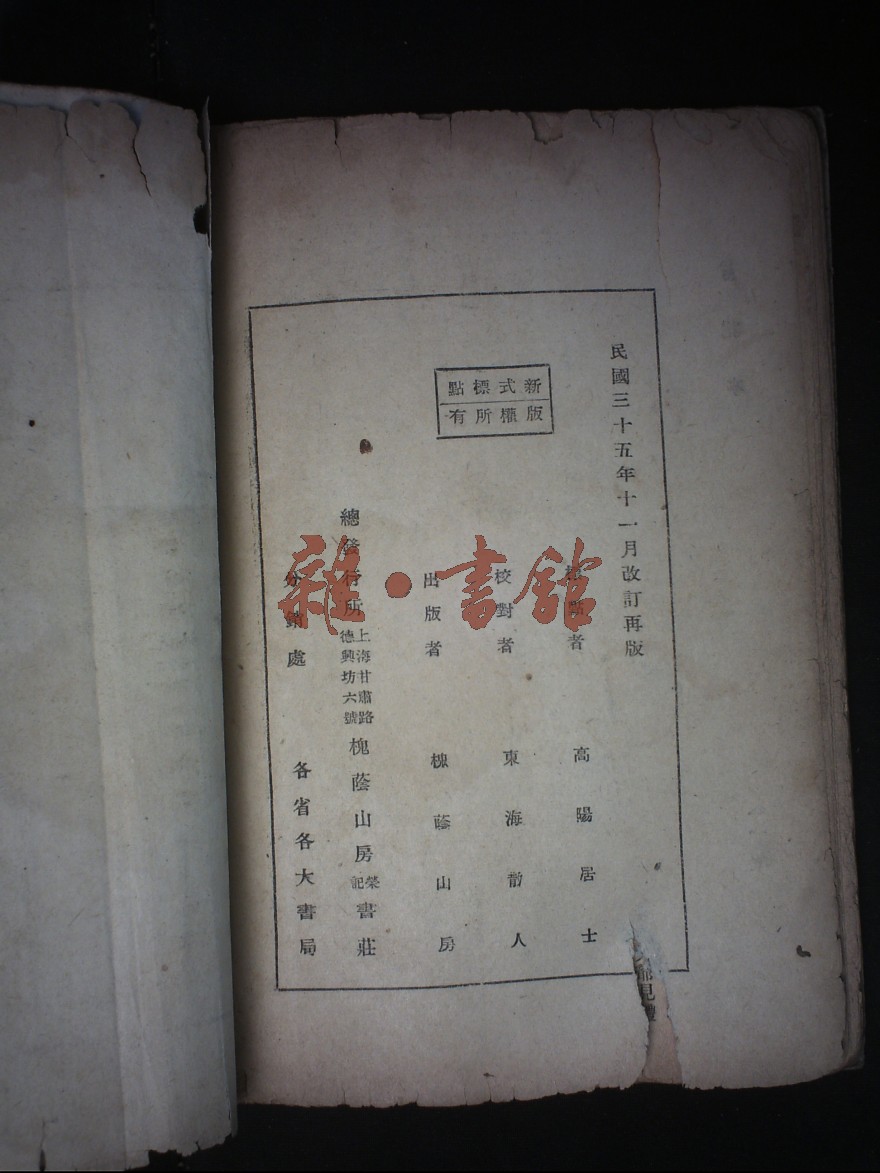 民國三十五年十一月改訂再版
新式標點
版權所有
標點者 高陽居士
校對者 東海散人
出版者 槐蔭山房
總發行所 上海甘肅路德興坊六號 槐蔭山房榮記書莊
分銷處 各省各大書局
雜·書館
見禮